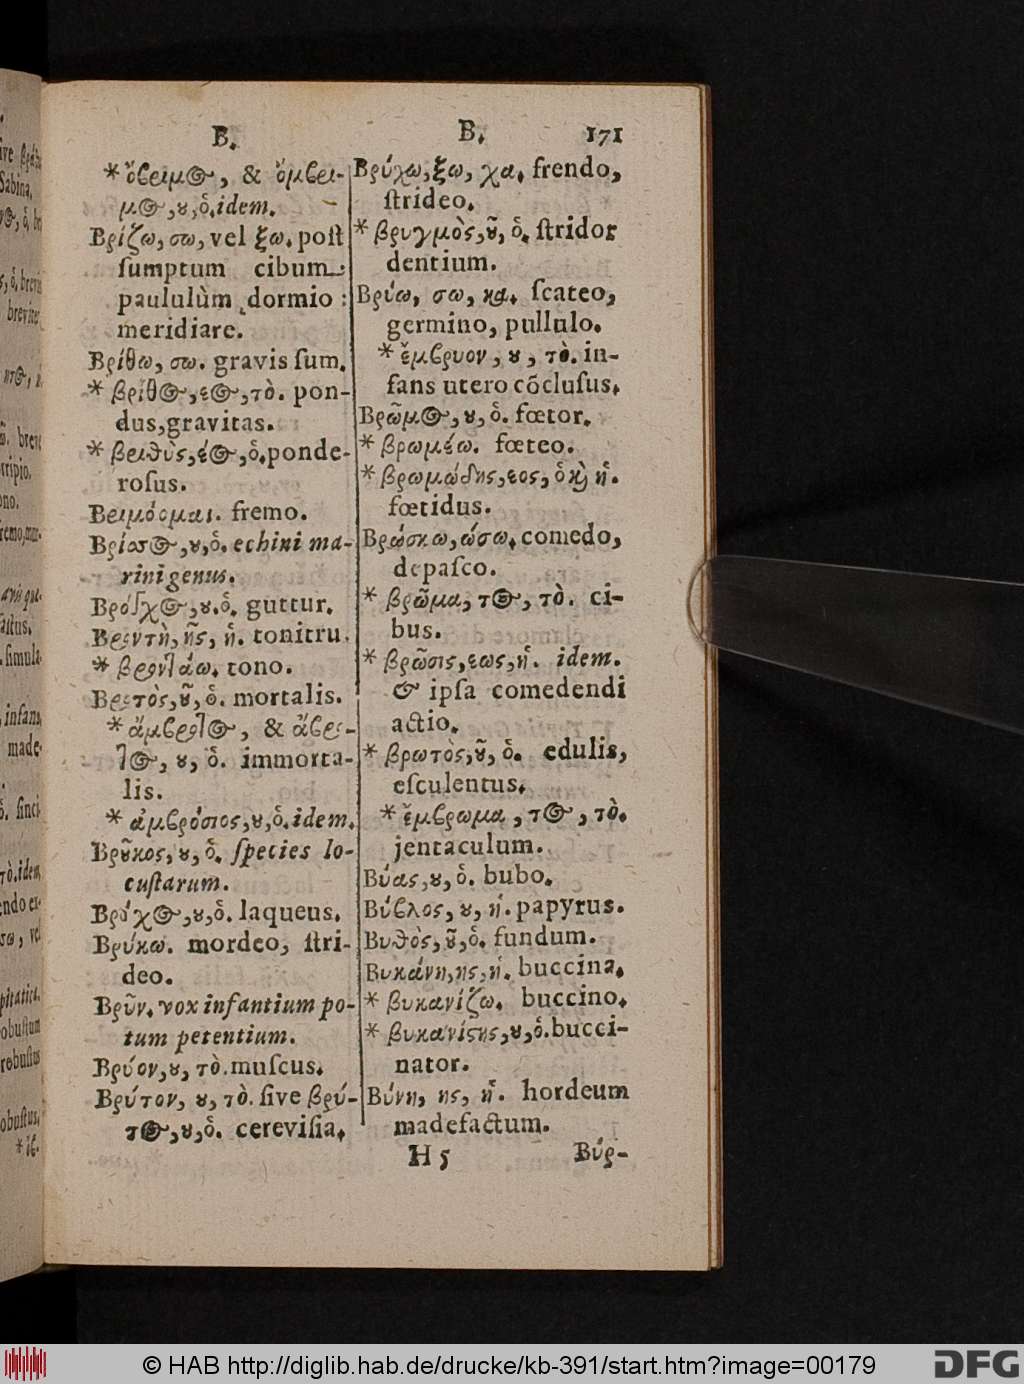 B.
* ὄβριμος, & ὄμβρι-
μος, ου, ὁ. idem.
Βρίζω, σω, vel ξω. poſt
ſumptum cibum
paululùm dormio :
meridiare.
Βρίθω, σω. gravis ſum.
* βρῖθος, εος, τὸ. pon-
dus, gravitas.
* βριθὺς, έος, ὁ. ponde-
roſus.
Βριμόομαι. fremo.
Βρίσσος, ου, ὁ. echini ma-
rini genus.
Βρόγχος, ου. ὁ. guttur.
Βροντὴ, ῆς, ἡ. tonitru.
* βροντάω. tono.
Βροτὸς, οῦ, ὁ. mortalis.
* ἄμβροτος, & ἄβρο-
τος, ου, ὁ. immorta-
lis.
* ἀμβρόσιος, ου, ὁ. idem.
Βροῦκος, ου, ὁ. ſpecies lo-
cuſtarum.
Βρόχος, ου, ὁ. laqueus.
Βρύκω. mordeo, ſtri-
deo.
Βρῦν. vox infantium po-
tum petentium.
Βρύον, ου, τὸ. muſcus.
Βρύτον, ου, τὸ. ſive βρύ-
τος, ου, ὁ. cereviſia.
B. 171
Βρύχω, ξω, χα. frendo,
ſtrideo.
* βρυγμὸς, οῦ, ὁ. ſtridor
dentium.
Βρύω, σω, κα. ſcateo,
germino, pullulo.
* ἔμβρυον, ου, τὸ. in-
fans utero cõcluſus.
Βρῶμος, ου, ὁ. fœtor.
* βρωμέω. fœteo.
* βρωμώδης, εος, ὁ καὶ ἡ.
fœtidus.
Βρώσκω, ώσω. comedo,
depaſco.
* βρῶμα, τος, τὸ. ci-
bus.
* βρῶσις, εως, ἡ. idem.
& ipſa comedendi
actio.
* βρωτὸς, οῦ, ὁ. edulis,
eſculentus.
* ἔμβρωμα, τος, τὸ.
jentaculum.
Βύας, ου, ὁ. bubo.
Βύβλος, ου, ἡ. papyrus.
Βυθὸς, οῦ, ὁ. fundum.
Βυκάνη, ης, ἡ. buccina.
* βυκανίζω. buccino.
* βυκανίστης, ου, ὁ. bucci-
nator.
Βύνη, ης, ἡ. hordeum
madefactum.
H 5 Βύρ-
© HAB http://diglib.hab.de/drucke/kb-391/start.htm?image=00179
DFG